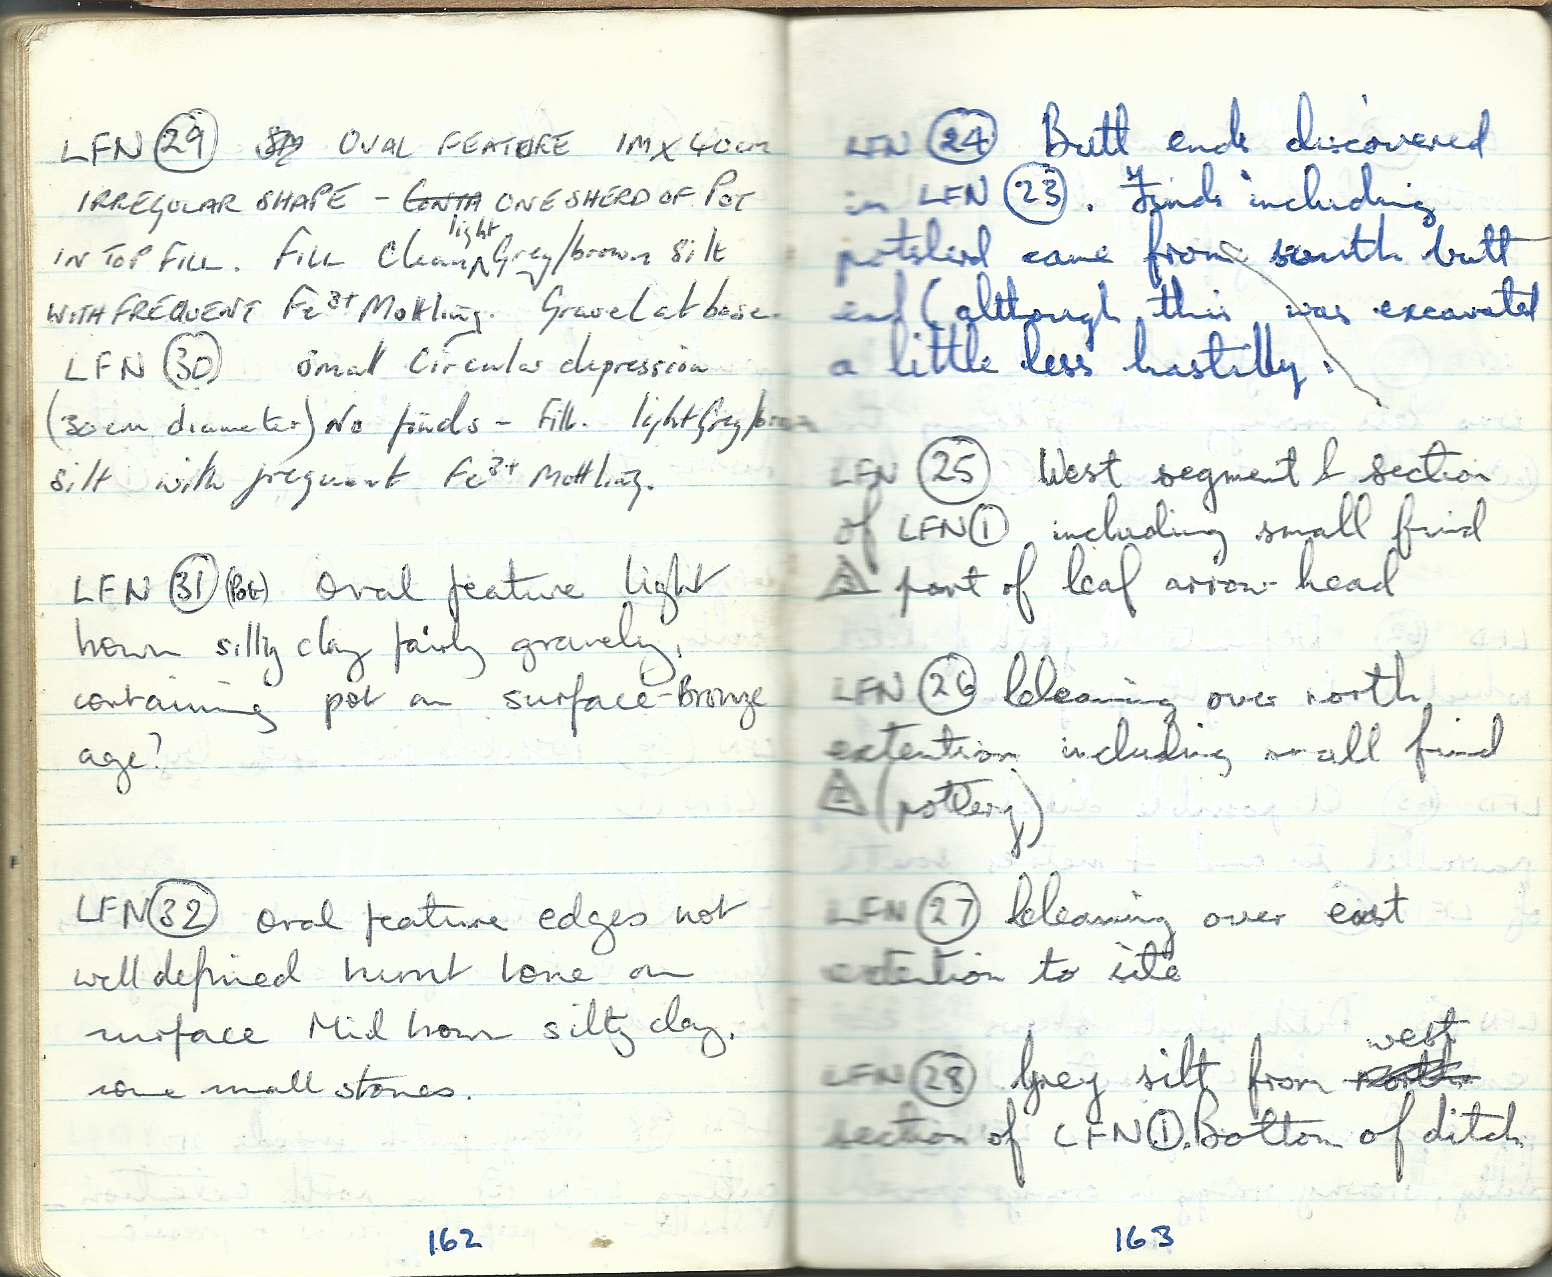 LFN 29 OVAL FEATURE 1M X 40cm
IRREGULAR SHAPE - CONTA ONE SHERD OF POT
IN TOP FILL. FILL Clean light Grey/brown Silt
WITH FREQUENT Fe3+ Mottling. Gravel at base.
LFN 30 small Circular depression
(30cm diameter) No finds - Fill. light Grey/brown
silt with frequent Fe3+ Mottling.
LFN 31 (Pot) Oval feature light
brown silty clay fairly gravely,
containing pot on surface - Bronze
age?
LFN 32 Oval feature edges not
well defined burnt bone on
surface Mid brown silty clay,
some small stones.
162
LFN 24 Butt ends discovered
in LFN 23. Finds including
potsherd came from south butt
end (although this was excavated
a little less hastilly.
LFN 25 West segment & section
of LFN 1 including small find
3 part of leaf arrow-head
LFN 26 Cleaning over north
extention including small find
2 (pottery)
LFN 27 Cleaning over east
extention to site
LFN 28 Grey silt from north west
section of LFN 1. Bottom of ditch
163